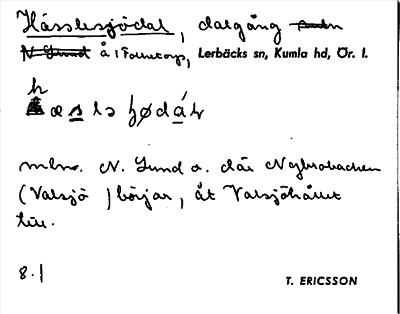 Hässlesjödal, dalgång
N Sund å i Folketorp, Lerbäcks sn, Kumla hd, Ör. l.
mln. N. Sund o. där Nybrobacken
(Valsjö ) börjar, åt Valsjöhållet
till.
8.1 T. ERICSSON